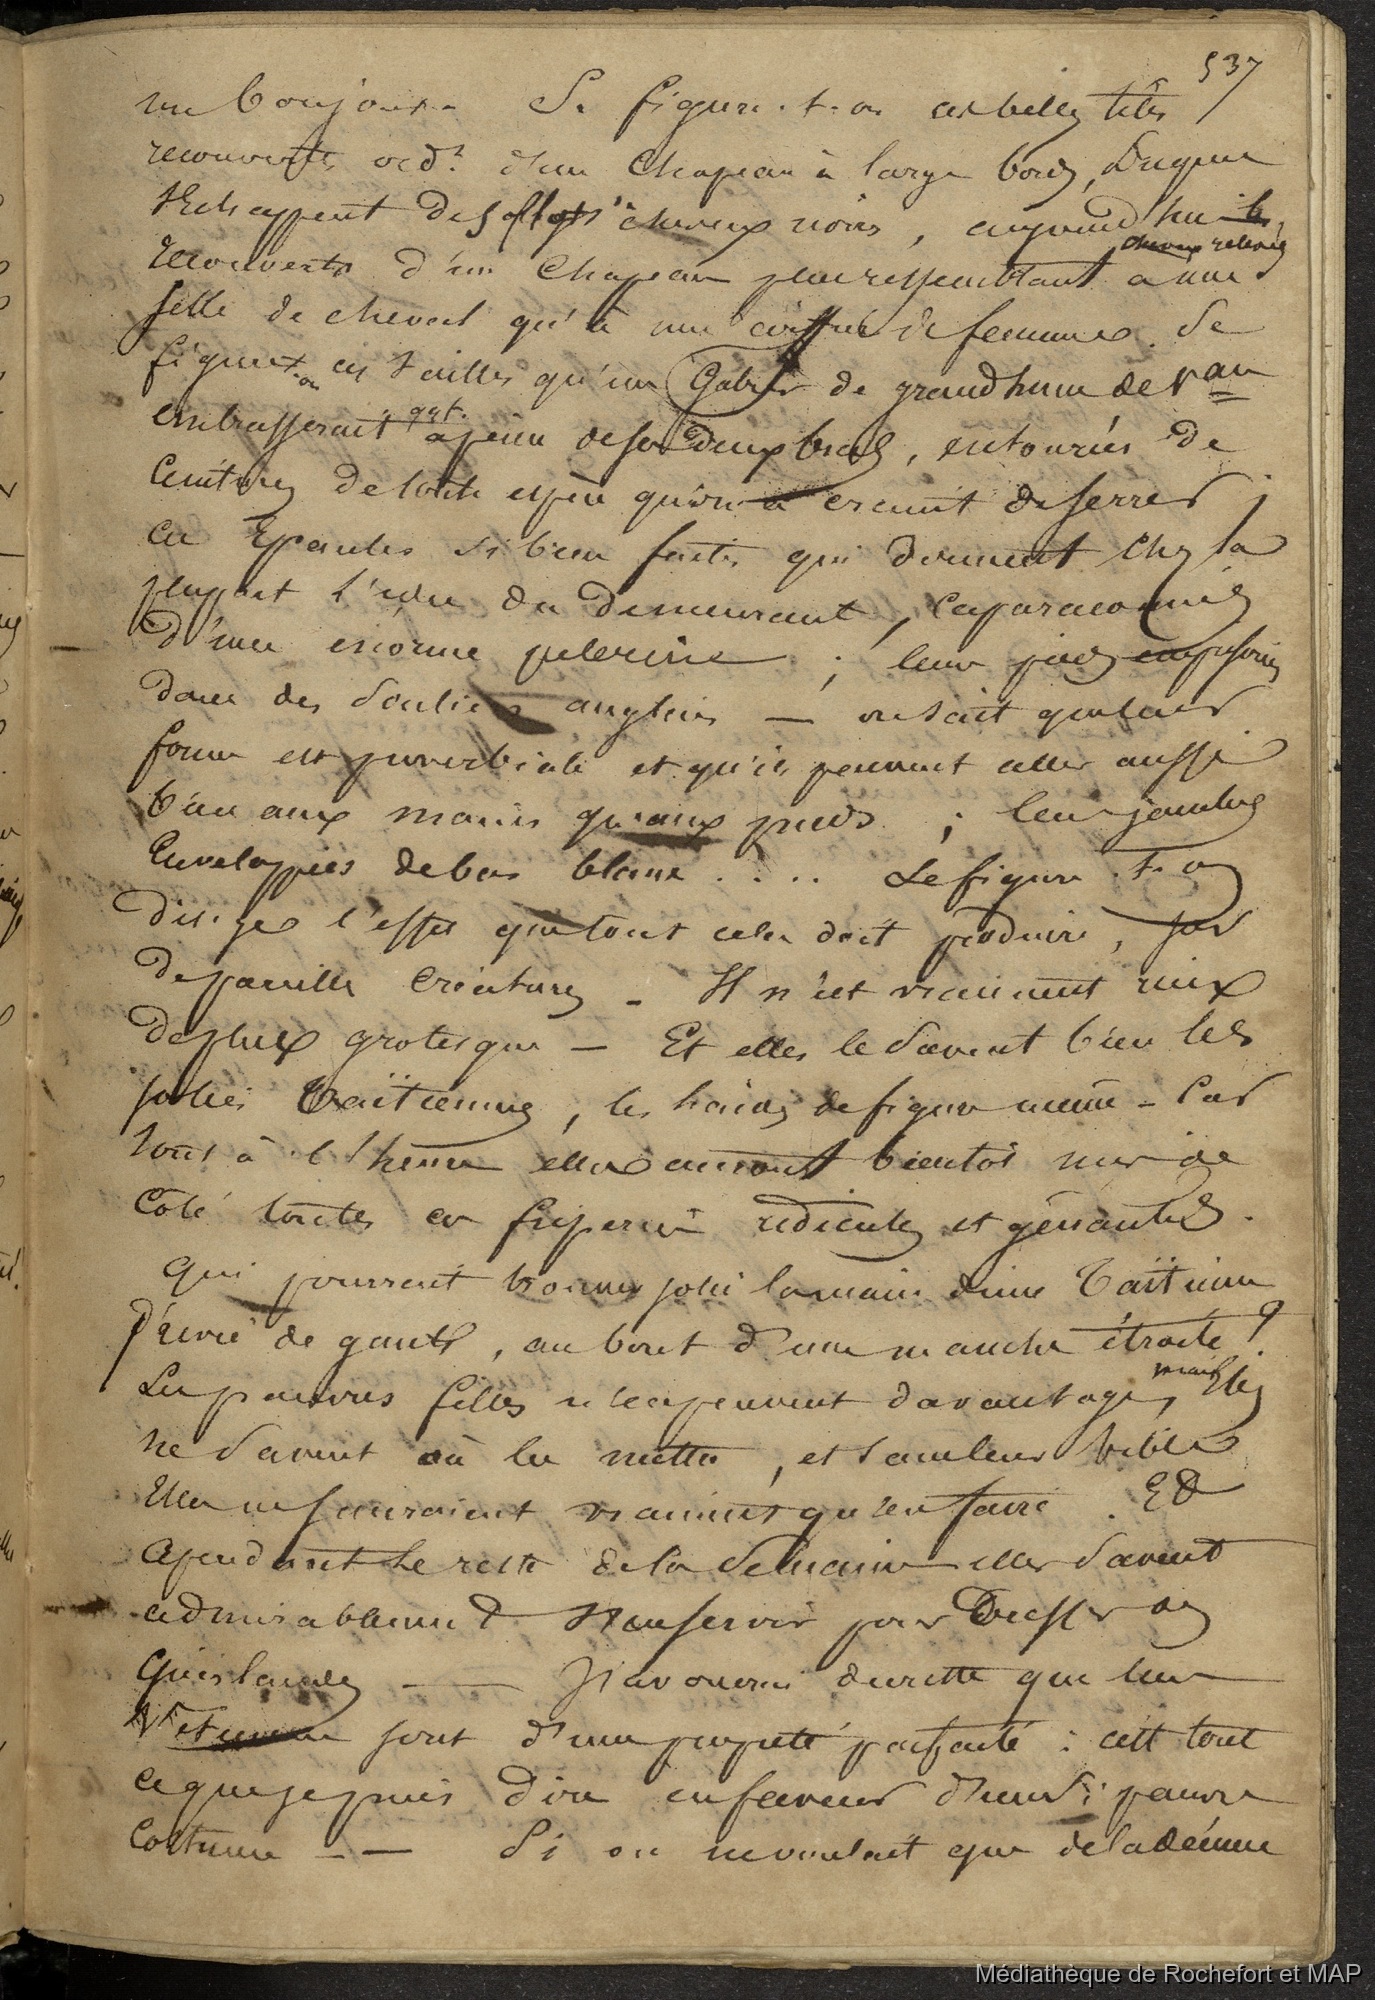 537
un bonjour. Se figure-t-on ces belles têtes
recouvertes ord.t d'un chapeau à large bord, duquel
s'échappent des flots cheveux noirs, aujourd'hui les
cheveux relevés
recouverts d'un chapeau plus ressemblant à une
selle de cheval qu'à une coiffure de femme. Se
figure-t-on ces tailles qu'un Gabier de grand hune de Vau
embrasserait qqf. à peine de ses deux bras, entourées de
ceintures de toute espèce qu'on a craint de serrer ;
ces Epaules si bien faites qui donnent chez la
plupart l'idée du demeurant, caparaconnés
d'une énorme pelerine ; leurs pieds emprisonnés
dans des souliers anglais — on sait que leur
forme est proverbiale et qu'ils peuvent aller aussi
bien aux mains qu'aux pieds ; leurs jambes
Enveloppées de bas blancs .... Se figure-t-on
dis-je l'effet que tout cela doit produire, sur
de pareilles créatures — Il n'est vraiment rien
de plus grotesque — Et elles le savent bien les
jolies Taïtiennes, les laides de figure même — Car
tout à l'heure elles auront bientôt mis de
côté toutes ces friperies ridicules et gênantes.
Qui pourrait trouver jolie la main d'une Taïtienne
privée de gants, au bout d'une manche étroite ?
Les pauvres filles n'en peuvent davantage, mais Elles
ne savent où les mettre, et sans leur bible
Elles ne sauraient vraiment qu'en faire. Et
cependant le reste de la semaine elles savent
admirablement s'en servir pour tresser des
Guirlandes —— J'avouerai du reste que leurs
Vetemens sont d'une propreté parfaite : c'est tout
ce que je puis dire en faveur d'un si pauvre
Costume —— Si on ne voulait que de la décence